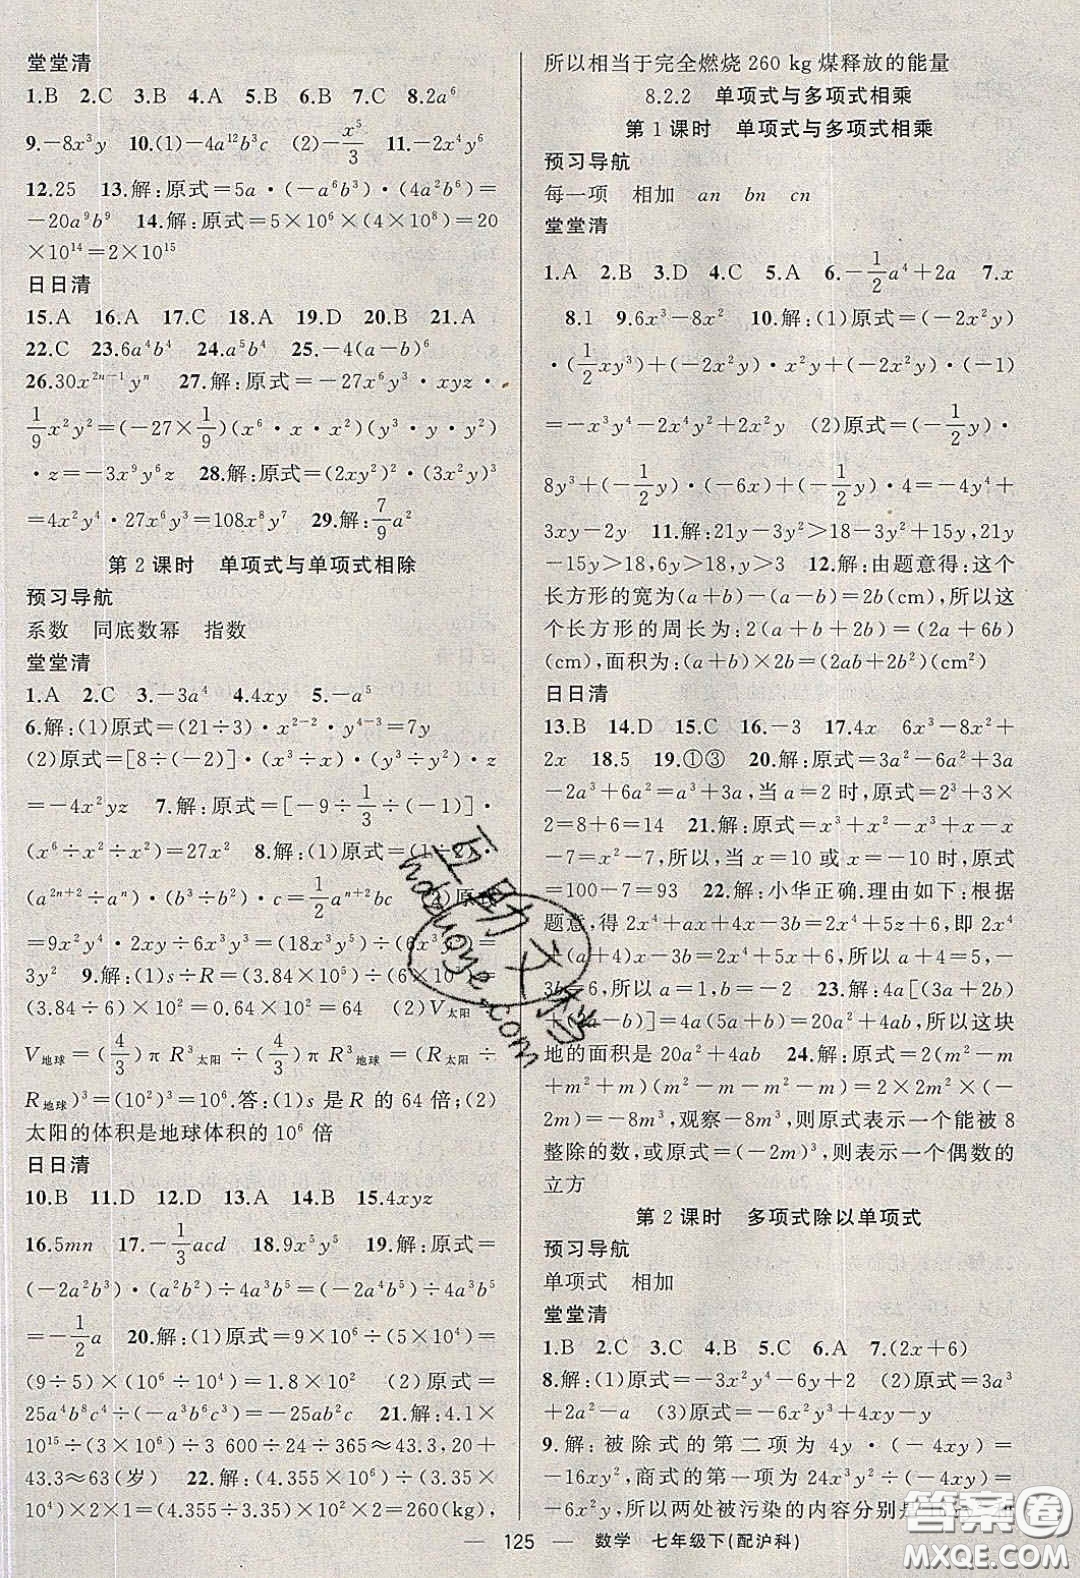 堂堂清
1.B 2.C 3.B 4.A 5.B 6.B 7.C 8.2a⁶
9.-8x³y 10.(1)-4a¹²b³c (2)-x⁵/3 11.-4x⁷
12.25 13.解:原式=5a·(-a⁶b³)·(4a²b⁶)=
-20a⁹b⁹ 14.解:原式=5×10⁶×(4×10⁸)=20
×10¹⁴=2×10¹⁵
日日清
15.A 16.A 17.C 18.A 19.D 20.B 21.A
22.C 23.6a⁴b⁴ 24.a⁵b⁴ 25.-4(a-b)⁶
26.30x²ⁿ⁻¹yⁿ 27.解:原式=-27x⁶y³·xyz·
1/9x²y²=(-27×1/9)(x⁶·x·x²)(y³·y·y²)
·z=-3x⁹y⁶z 28.解:原式=(2xy²)²·(3x²y)³
=4x²y⁴·27x⁶y³=108x⁸y⁷ 29.解:7/9a²
第2课时 单项式与单项式相除
预习导航
系数 同底数幂 指数
堂堂清
1.A 2.C 3.-3a⁴ 4.4xy 5.-a⁵
6.解:(1)原式=(21÷3)·x²⁻²·y⁴⁻³=7y
(2)原式=[8÷(-2)]·(x³÷x)·(y²÷y)·z
=-4x²yz 7.解:原式=[-9÷1/3÷(-1)]·
(x⁶÷x²÷x²)=27x² 8.解:(1)原式=(1÷2)·
(aⁿ⁺²÷aⁿ)·(b³÷b²)·c=1/2a²bc (2)原式
=9x²y⁴·2xy÷6x³y³=(18x³y⁵)÷(6x³y³)=
3y² 9.解:(1)s÷R=(3.84×10⁵)÷(6×10³)=
(3.84÷6)×10²=0.64×10²=64 (2)V太阳÷
V地球=(4/3)πR³太阳÷(4/3)πR³地球=(R太阳÷
R地球)³=(10²)³=10⁶.答:(1)s是R的64倍;(2)
太阳的体积是地球体积的10⁶倍
日日清
10.B 11.D 12.D 13.A 14.B 15.4xyz
16.5mn 17.-1/3acd 18.9x⁵y⁵ 19.解:原式=
(-2a²b³)·(a²b²)÷4a³b⁵=(-2a⁴b⁵)÷4a³b⁵
=-1/2a 20.解:(1)原式=9×10⁶÷(5×10⁴)=
(9÷5)×(10⁶÷10⁴)=1.8×10² (2)原式=
25a⁴b⁸c⁴÷(-a³b⁶c³)=-25ab²c 21.解:4.1×
10¹⁵÷(3×10⁵)÷3 600÷24÷365≈43.3,20+
43.3≈63(岁) 22.解:(4.355×10⁶)÷(3.35×
10⁴)×2×1=(4.355÷3.35)×10²×2=260(kg),
所以相当于完全燃烧260 kg煤释放的能量
8.2.2 单项式与多项式相乘
第1课时 单项式与多项式相乘
预习导航
每一项 相加 an bn cn
堂堂清
1.A 2.B 3.D 4.C 5.A 6.-1/2a⁴+2a 7.x
8.1 9.6x³-8x² 10.解:(1)原式=(-2x²y)
·(1/2xy³)+(-2x²y)·x²y+(-2x²y)·(-1)
=-x³y⁴-2x⁴y²+2x²y (2)原式=(-1/2y)·
8y³+(-1/2y)·(-6x)+(-1/2y)·4=-4y⁴+
3xy-2y 11.解:21y-3y²>18-3y²+15y,21y
-15y>18,6y>18,y>3 12.解:由题意得:这个
长方形的宽为(a+b)-(a-b)=2b(cm),所以这
个长方形的周长为:2(a+b+2b)=(2a+6b)
(cm),面积为:(a+b)×2b=(2ab+2b²)(cm²)
日日清
13.B 14.D 15.C 16.-3 17.4x 6x³-8x²+
2x 18.5 19.①③ 20.解:原式=3a²-6a²+3a
-2a³+6a²=a³+3a,当a=2时,原式=2³+3×
2=8+6=14 21.解:原式=x³+x²-x³+x-x
-7=x²-7,所以,当x=10或x=-10时,原式
=100-7=93 22.解:小华正确.理由如下:根据
题意,得2x⁴+ax+4x-3b=2x⁴+5z+6,即2x⁴
+(a+4)x-3b=2x⁴+5x+6,所以a+4=5,-
3b=6,所以a=1,b=-2 23.解:4a[(3a+2b)
+(2a-b)]=4a(5a+b)=20a²+4ab,所以这块
地的面积是20a²+4ab 24.解:原式=2(m²-m
+m²+m)(m²-m-m²-m)=2×2m²×(-
2m)=-8m³,观察-8m³,则原式表示一个能被8
整除的数,或原式=(-2m)³,则表示一个偶数的
立方
第2课时 多项式除以单项式
预习导航
单项式 相加
堂堂清
1.B 2.C 3.C 4.D 5.C 6.A 7.(2x+6)
8.解:(1)原式=-3x²y⁴-4xy+2 (2)原式=3a³
+2a²-a (3)原式=-6x+2y-xy
9.解:被除式的第二项为4y·(-4xy)=
-16xy²,商式的第一项为24x³y²÷(-4xy)=
-6x²y,所以两处被污染的内容分别是
125 数学 七年级下(配沪科)
互助文档
hdzuoye.com
答案圈
MXQE.COM